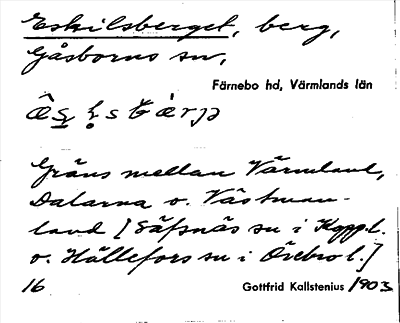 Eskilsberget, berg,
Gåsborns sn,
Färnebo hd, Värmlands län
Gräns mellan Värmland,
Dalarna o. Västman-
land [Säfsnäs sn i Koppl.
o. Hällefors sn i Örebro l.]
16 Gottfrid Kallstenius 1903